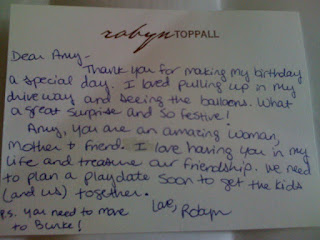 robyn TOPPALL
Dear Amy-
Thank you for making my birthday
a special day. I loved pulling up in my
driveway and seeing the balloons. What
a great surprise and so festive!
Amy, you are an amazing woman,
mother & friend. I love having you in my
life and treasure our friendship. We need
to plan a playdate soon to get the kids
(and us) together.
Love,
Robyn
P.S. You need to move
to Burke!